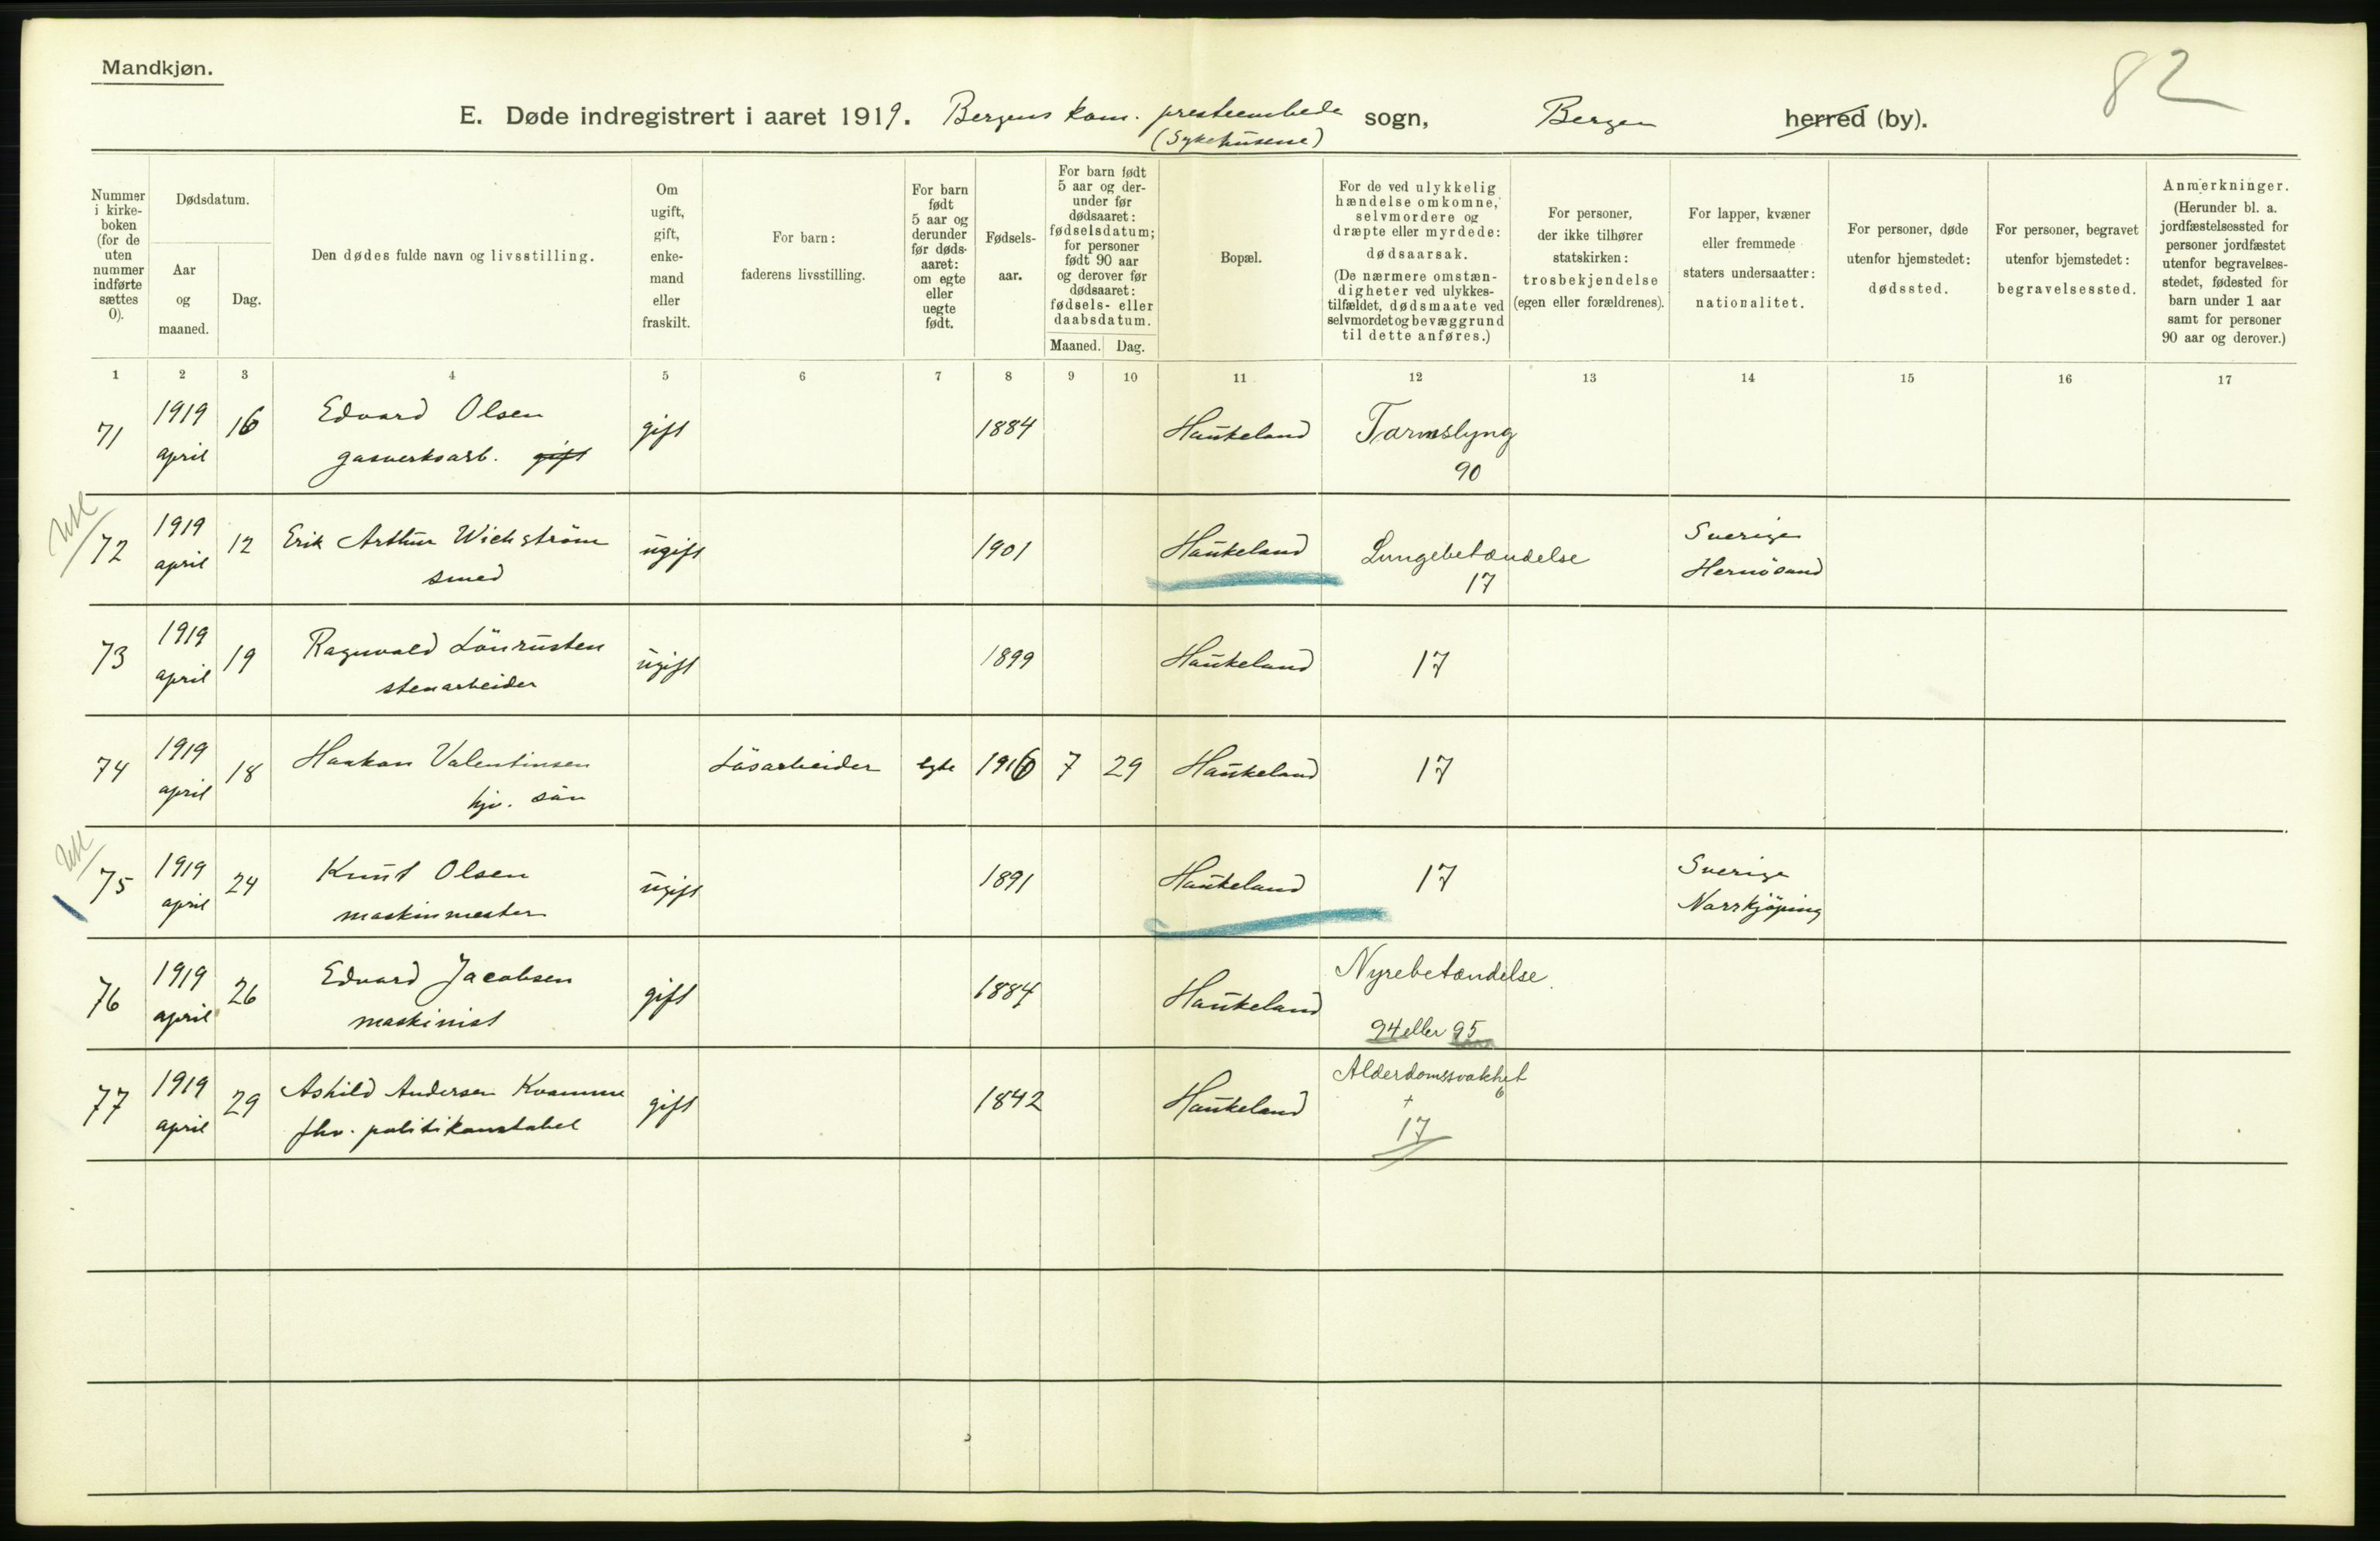 Mandkjøn.
82
E. Døde indregistrert i aaret 1919. Bergens kom. presteembede sogn, Bergen herred (by).
(Sykehusene)
Nummer i kirkeboken (for de uten nummer indførte sættes 0).
Dødsdatum.
Aar og maaned.
Dag.
Den dødes fulde navn og livsstilling.
Om ugift, gift, enkemand eller fraskilt.
For barn: faderens livsstilling.
For barn født 5 aar og derunder før dødsaaret: om egte eller uegte født.
Fødselsaar.
For barn født 5 aar og derunder før dødsaaret: fødselsdatum; for personer født 90 aar og derover før dødsaaret: fødsels- eller daabsdatum.
Maaned. Dag.
Bopæl.
For de ved ulykkelig hændelse omkomne, selvmordere og dræpte eller myrdede: dødsaarsak. (De nærmere omstændigheter ved ulykkestilfældet, dødsmaate ved selvmordet og bevæggrund til dette anføres.)
For personer, der ikke tilhører statskirken: trosbekjendelse (egen eller forældrenes).
For lapper, kvæner eller fremmede staters undersaatter: nationalitet.
For personer, døde utenfor hjemstedet: dødssted.
For personer, begravet utenfor hjemstedet: begravelsessted.
Anmerkninger. (Herunder bl. a. jordfæstelsessted for personer jordfæstet utenfor begravelsesstedet, fødested for barn under 1 aar samt for personer 90 aar og derover.)
1 2 3 4 5 6 7 8 9 10 11 12 13 14 15 16 17
71 1919 april 16 Edvard Olsen gift 1884 Haukeland Tarmslyng
gasverksarb. gift 90
72 1919 april 12 Erik Arthur Wichström ugift 1901 Haukeland Lungebetændelse Sverige
smed 17 Hernösand
73 1919 april 19 Ragnvald Lönrusten ugift 1899 Haukeland 17
stenarbeider
74 1919 april 18 Haakon Valentinsen Lösarbeider egte 1916 7 29 Haukeland 17
hjv. sön
75 1919 april 24 Knut Olsen ugift 1891 Haukeland 17 Sverige
maskinmester Norrkjöping
76 1919 april 26 Edvard Jacobsen gift 1884 Haukeland Nyrebetændelse.
maskinist 94 eller 95
77 1919 april 29 Askild Andersen Kvamme gift 1842 Haukeland Alderdomssvakhet 6
fhv. politikonstabel + 17